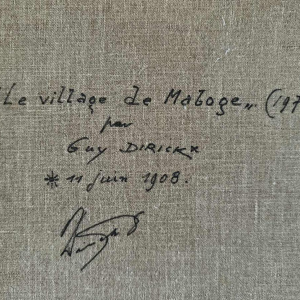 "Le village de Maboge„ (197
par
Guy DIRICKX
* 11 juin 1908.